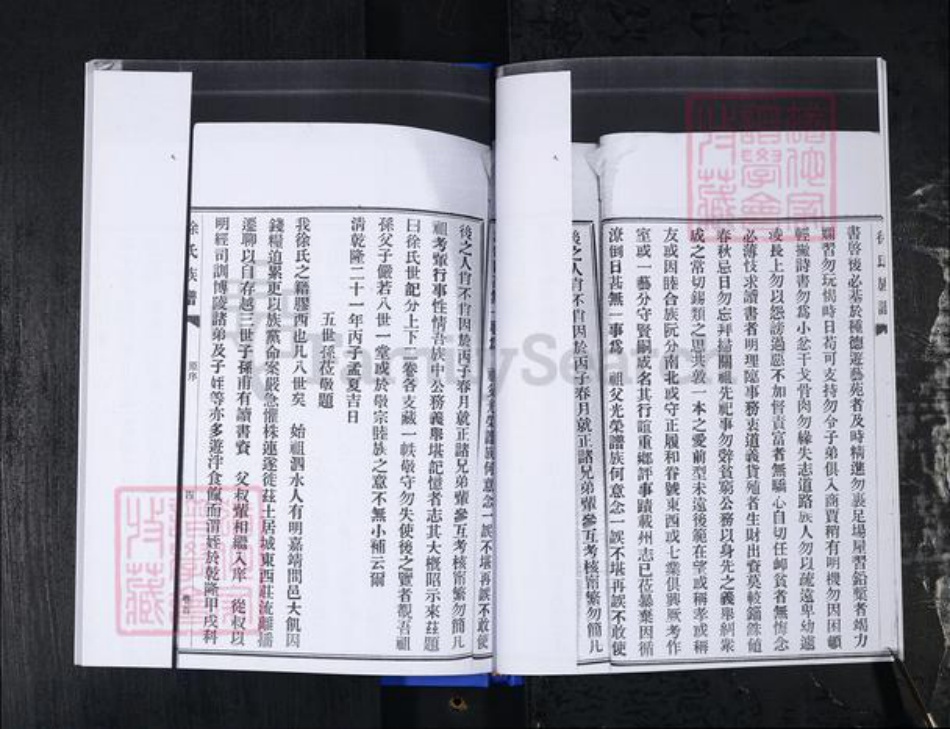 書啓後必基於種德遊藝苑者及時精進勿裹足場屋習鉛槧者竭力
習勿玩愒時日苟可支持勿令子弟俱入商賈稍有明機勿因困頓
輕撇詩書勿爲小忿干戈骨肉勿緣失志道路族人勿以疏遠卑幼遽
凌長上勿以怨謗過惡不加督責富者無驕心自切任卹貧者無悔念
必薄忮求讀書者明理臨事務衷道義貨殖者生財出資莫較錙銖値
春秋忌日勿忘拜掃關祖先祀事勿辭貧窮公務以身先之義舉綱衆
成之常切錫類之思共敦一本之愛前型未遠後範在望或稱孝或稱
友或因睦合族阮分南北或守正履和眷號東西或七業俱興厥考作
室或一藝分守賢嗣成名其行誼重鄉評事蹟載州志已莅暴棄因循
潦倒日甚無一事爲 祖父光榮譜族何意念一誤不堪再誤不敢使
後之人肯不肯因於丙子春月就正諸兄弟輩參互考核甯繁勿簡凡
後之人肯不肯因於丙子春月就正諸兄弟輩參互考核甯繁勿簡凡
祖考輩行事性情吾族中公務義舉堪記憶者志其大概昭示來茲題
曰徐氏世記分上下二卷各支藏一帙敬守勿失使後之覽者覩吾祖
孫父子儼若八世一堂或於敬宗睦族之意不無小補云爾
清乾隆二十一年丙子孟夏吉日
五世孫莅敬題
我徐氏之籍膠西也凡八世矣 始祖泗水人有明嘉靖間邑大飢因
錢糧迫累更以族黨命案嚴急懼株連遂徙茲土居城東西莊流離播
遷聊以自存越三世子孫甫有讀書資 父叔輩相繼入庠 從叔以
明經司訓博陵諸弟及子姪等亦多遊泮食餼而渭姪於乾隆甲戌科
徐氏族譜
原序
四
卷首